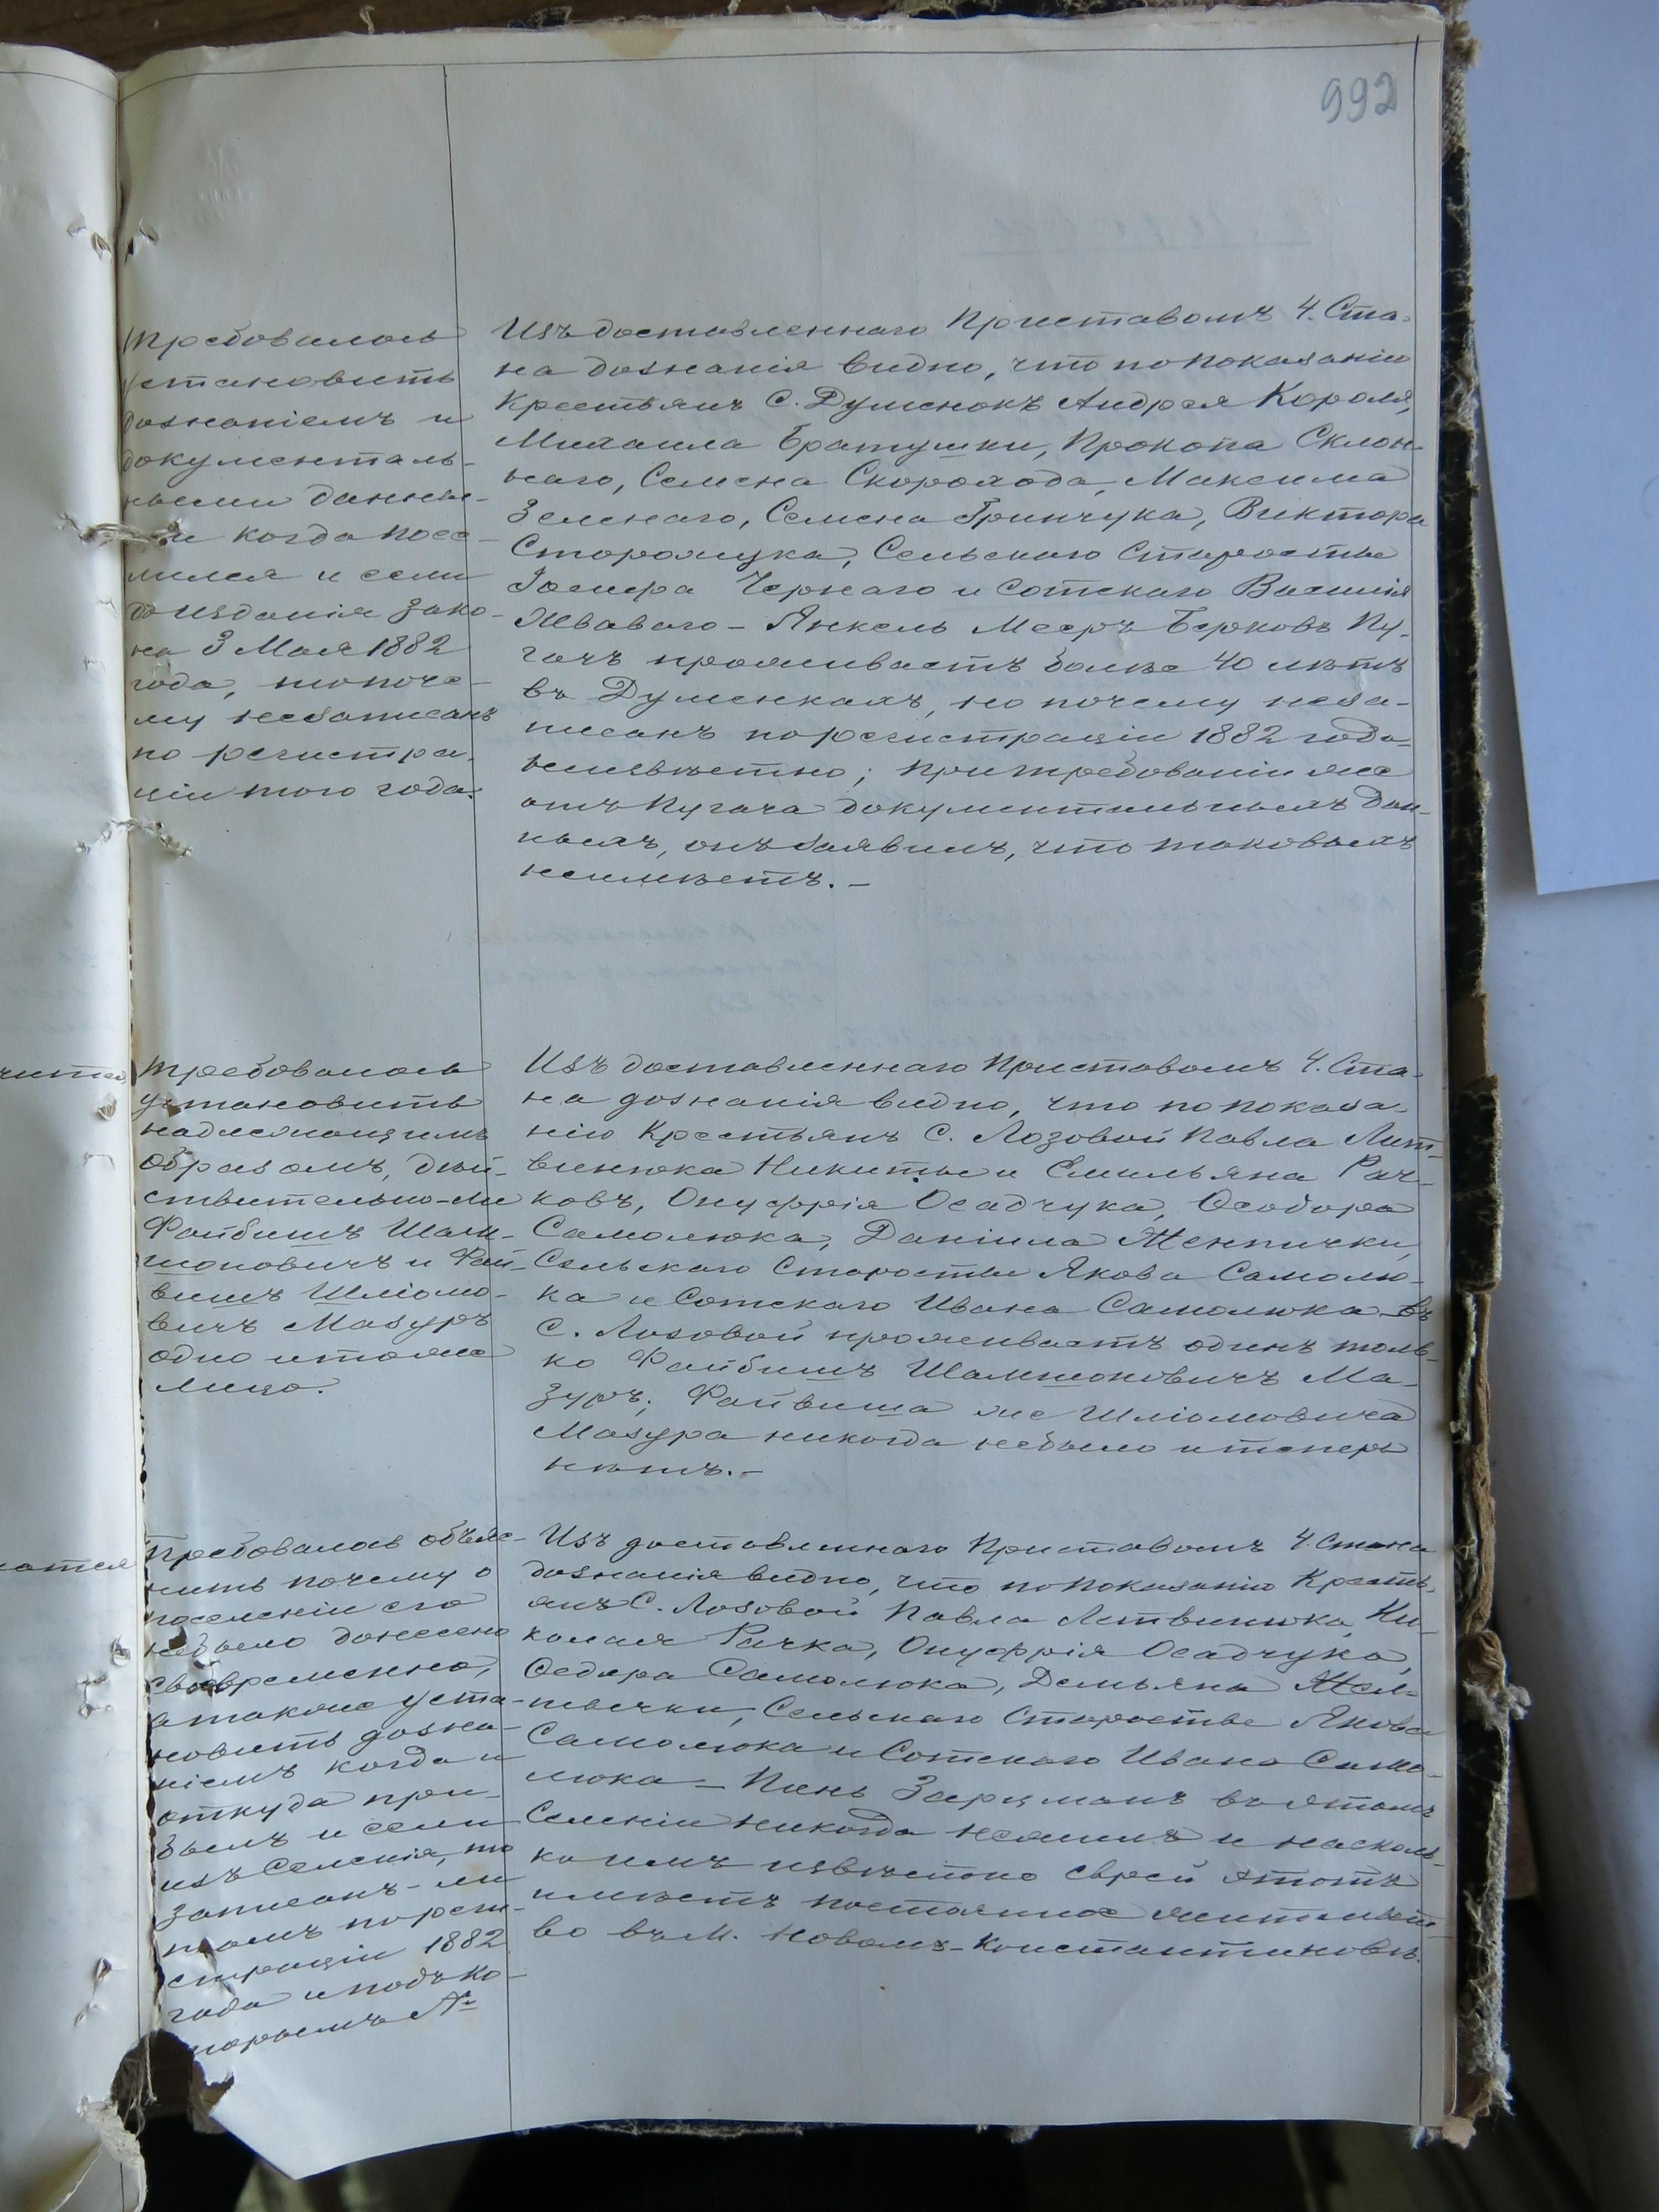 992
Требовалось
установить
дознаніемъ и
документаль-
ными данны-
ми когда посе-
лился и если
до изданія зако-
на 3 Мая 1882
года, то поче-
му незаписанъ
по регистра-
ціи того года.
Изъ доставленнаго Приставомъ 4. Ста-
на дознанія видно, что по показанію
Крестьянъ С. Думенокъ Андрея Короля,
Михаила Братушки, Прокопа Склон-
наго, Семена Скорохода, Максима
Зеленаго, Семена Гринчука, Виктора
Сторожука, Сельскаго Старосты
Іосифа Чернаго и Сотскаго Василія
Жваваго – Янкель Мееръ Берковъ Пу-
гачъ проживаетъ более 40 лѣтъ
въ Думенкахъ, но почему неза-
писанъ по регистраціи 1882 года
неизвѣстно; при требованіи же
отъ Пугача документальныхъ дан-
ныхъ, онъ заявилъ, что таковыхъ
неимѣетъ. –
Требовалось
установить
надлежащимъ
образомъ, дѣй-
ствительно-ли
Файбишъ Шам-
шоновичъ и Фай-
вишъ Шліомо-
вичъ Мазуръ
одно и тоже
лицо.
Изъ доставленнаго Приставомъ 4. Ста-
на дознанія видно, что по показа-
нію Крестьянъ С. Лозовой Павла Лит-
винюка Никиты и Емильяна Рач-
ковъ, Онуфрія Осадчука, Ѳеодора
Самолюка, Даніила Жентички,
Сельскаго Старосты Якова Самолю-
ка и Сотскаго Ивана Самолюка – въ
С. Лозовой проживаетъ одинъ толь-
ко Файбишъ Шамшоновичъ Ма-
зуръ; Файвиша же Шліомовича
Мазура никогда небыло и теперь
нѣтъ. –
Требовалось объяс-
нить почему о
поселеніи его
небыло донесено
своевременно,
а также уста-
новить дозна-
ніемъ когда и
откуда при-
былъ и если
изъ Селенія, то
записанъ-ли
тамъ по реги-
страціи 1882
года и подъ ко-
торымъ №
Изъ доставленнаго Приставомъ 4. Стана
дознанія видно, что по показанію Кресть-
янъ С. Лозовой Павла Литвинюка, Ни-
колая Рачка, Онуфрія Осадчука,
Ѳедора Самолюка, Демьяна Жен-
тычки, Сельскаго Старосты Якова
Самолюка и Сотскаго Ивана Само-
люка – Пинь Зарцманъ въ этомъ
Селеніи никогда нежилъ и насколь-
ко имъ извѣстно еврей этотъ
имѣетъ постоянное жительст-
во въ М. Новомъ-Константиновѣ.